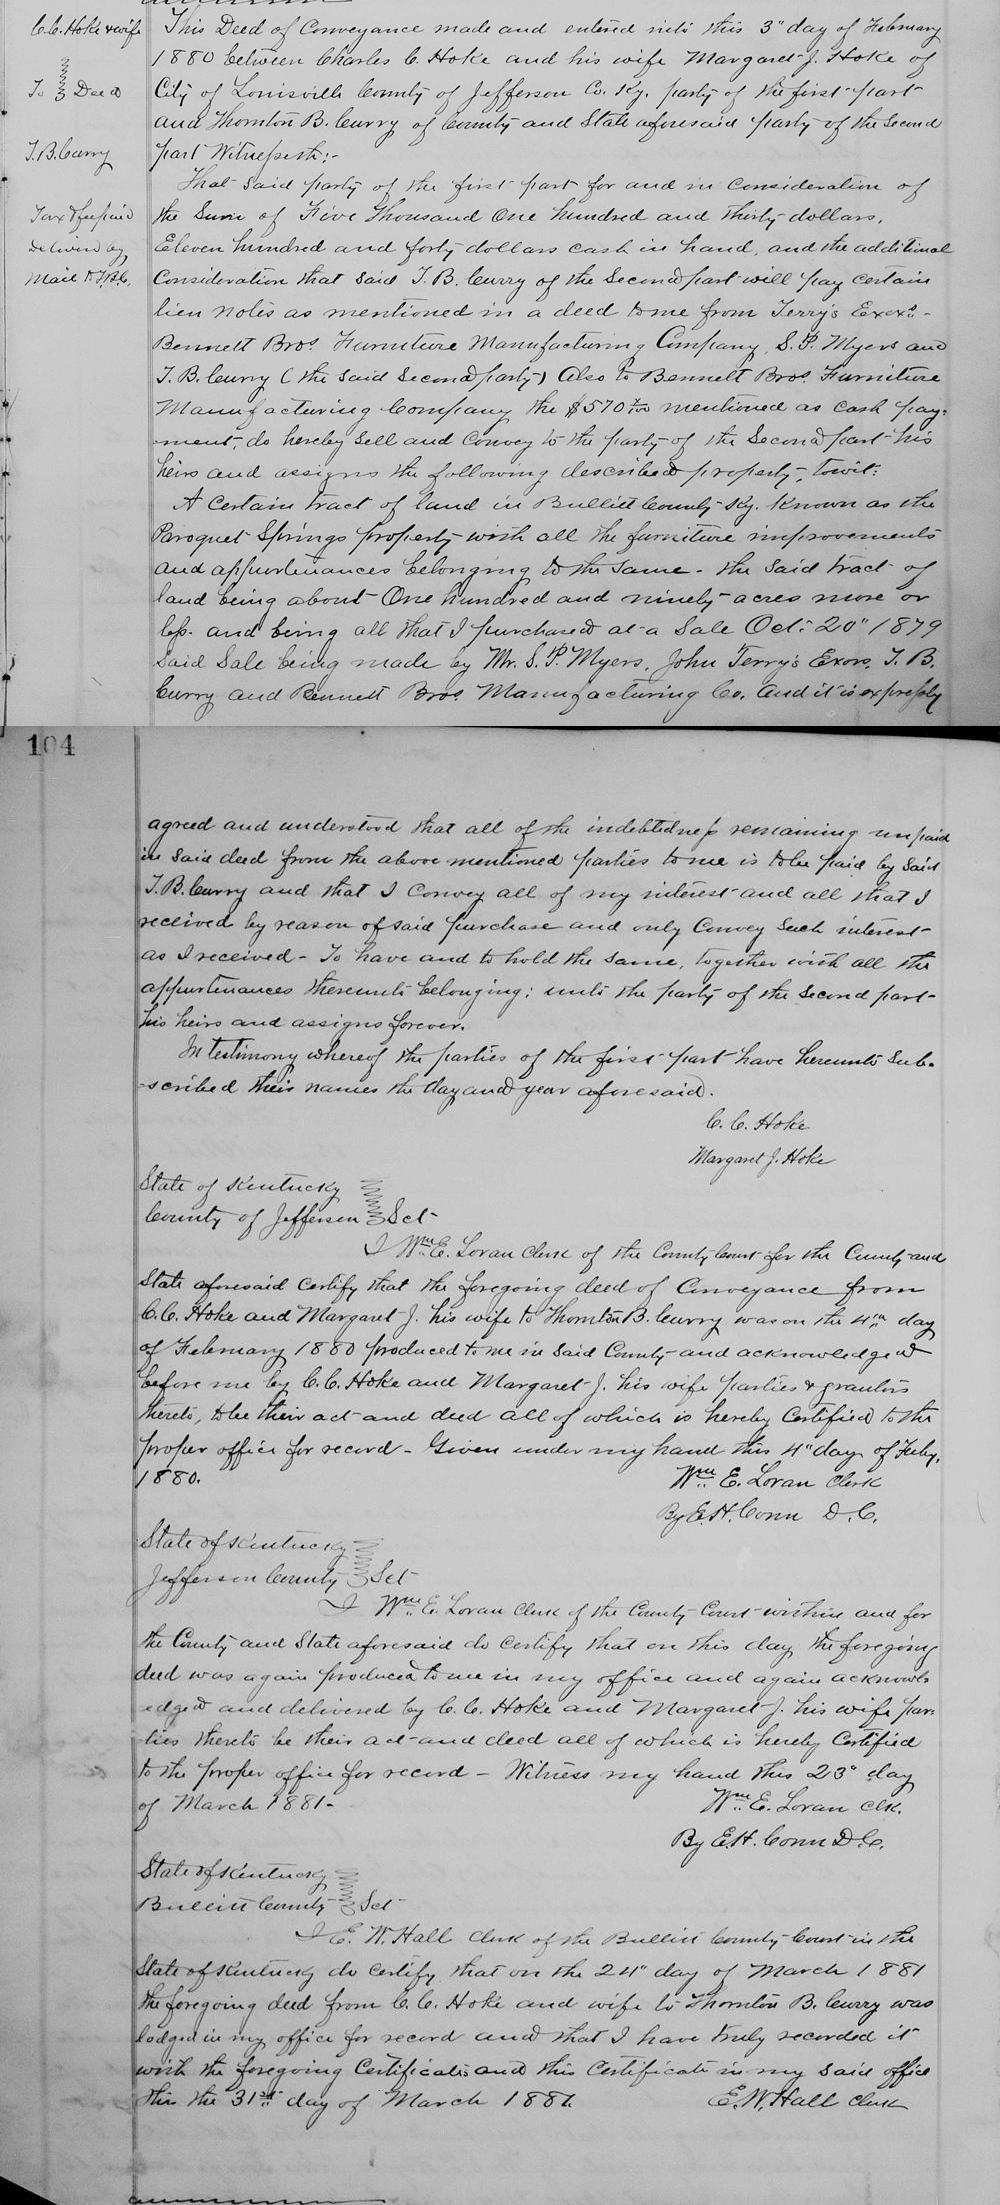 C.C. Hoke & wife
To } Deed
T.B. Curry
Tax & fee paid
delivered by
Mail to T.B.C.
This Deed of Conveyance made and entered into this 3" day of February
1880 between Charles C. Hoke and his wife Margaret J. Hoke of
City of Louisville County of Jefferson Co. Ky. party of the first part
and Thornton B. Curry of County and State aforesaid party of the Second
part Witnesseth:-
That said party of the first part for and in consideration of
the Sum of Five Thousand One hundred and thirty dollars,
Eleven hundred and forty dollars cash in hand, and the additional
Consideration that said T.B. Curry of the Second part will pay certain
lien notes as mentioned in a deed to me from Terry's Exexs. -
Bennett Bros. Furniture Manufacturing Company, S.P. Myers and
T.B. Curry (the said Second party) Also to Bennett Bros. Furniture
Manufacturing Company the $570 mentioned as cash pay-
ment, do hereby Sell and Convey to the party of the Second part his
heirs and assigns the following described property, towit:
A Certain tract of land in Bullitt County Ky. Known as the
Paroquet Springs property with all the furniture improvements
and appurtenances belonging to the same - the said tract of
land being about One hundred and ninety acres more or
less. and being all that I purchased at a Sale Oct. 20" 1879
Said Sale being made by Mr. S.P. Myers, John Terry's Exors, T.B.
Curry and Bennett Bros Manufacturing Co. And it is expressly
104
agreed and understood that all of the indebtedness remaining unpaid
in said deed from the above mentioned parties to me is to be paid by said
T.B. Curry and that I Convey all of my interest and all that I
received by reason of said purchase and only Convey Such interest
as I received - To have and to hold the same, together with all the
appurtenances thereunto belonging; unto the party of the Second part
his heirs and assigns forever.
In testimony whereof the parties of the first part have hereunto Sub-
-scribed their names the day and year aforesaid.
C.C. Hoke
Margaret J. Hoke
State of Kentucky
County of Jefferson } Sct
I Wm. E. Loran Clerk of the County Court for the County and
State aforesaid Certify that the foregoing deed of Conveyance from
C.C. Hoke and Margaret J. his wife to Thornton B. Curry was on the 4th day
of February 1880 produced to me in said County and acknowledged
before me by C.C. Hoke and Margaret J. his wife parties & grantors
thereto, to be their act and deed all of which is hereby Certified to the
proper office for record - Given under my hand this 4" day of Feby,
1880.
Wm E. Loran Clerk
By E.H. Conn D.C.
State of Kentucky
Jefferson County } Sct
I Wm. E. Loran Clerk of the County Court within and for
the County and State aforesaid do Certify that on this day the foregoing
deed was again produced to me in my office and again acknowl
edged and delivered by C.C. Hoke and Margaret J. his wife par-
-ties thereto be their act and deed all of which is hereby Certified
to the proper office for record - Witness my hand this 23d day
of March 1881-
Wm. E. Loran Clk.
By E.H. Conn D.C.
State of Kentucky
Bullitt County } Sct
I E.W. Hall Clerk of the Bullitt County Court in the
State of Kentucky do certify that on the 24" day of March 1881
the foregoing deed from C.C. Hoke and wife to Thornton B. Curry was
lodged in my office for record and that I have truly recorded it
with the foregoing Certificates and this Certificate in my said office
this the 31st day of March 1881.
E.W. Hall Clerk